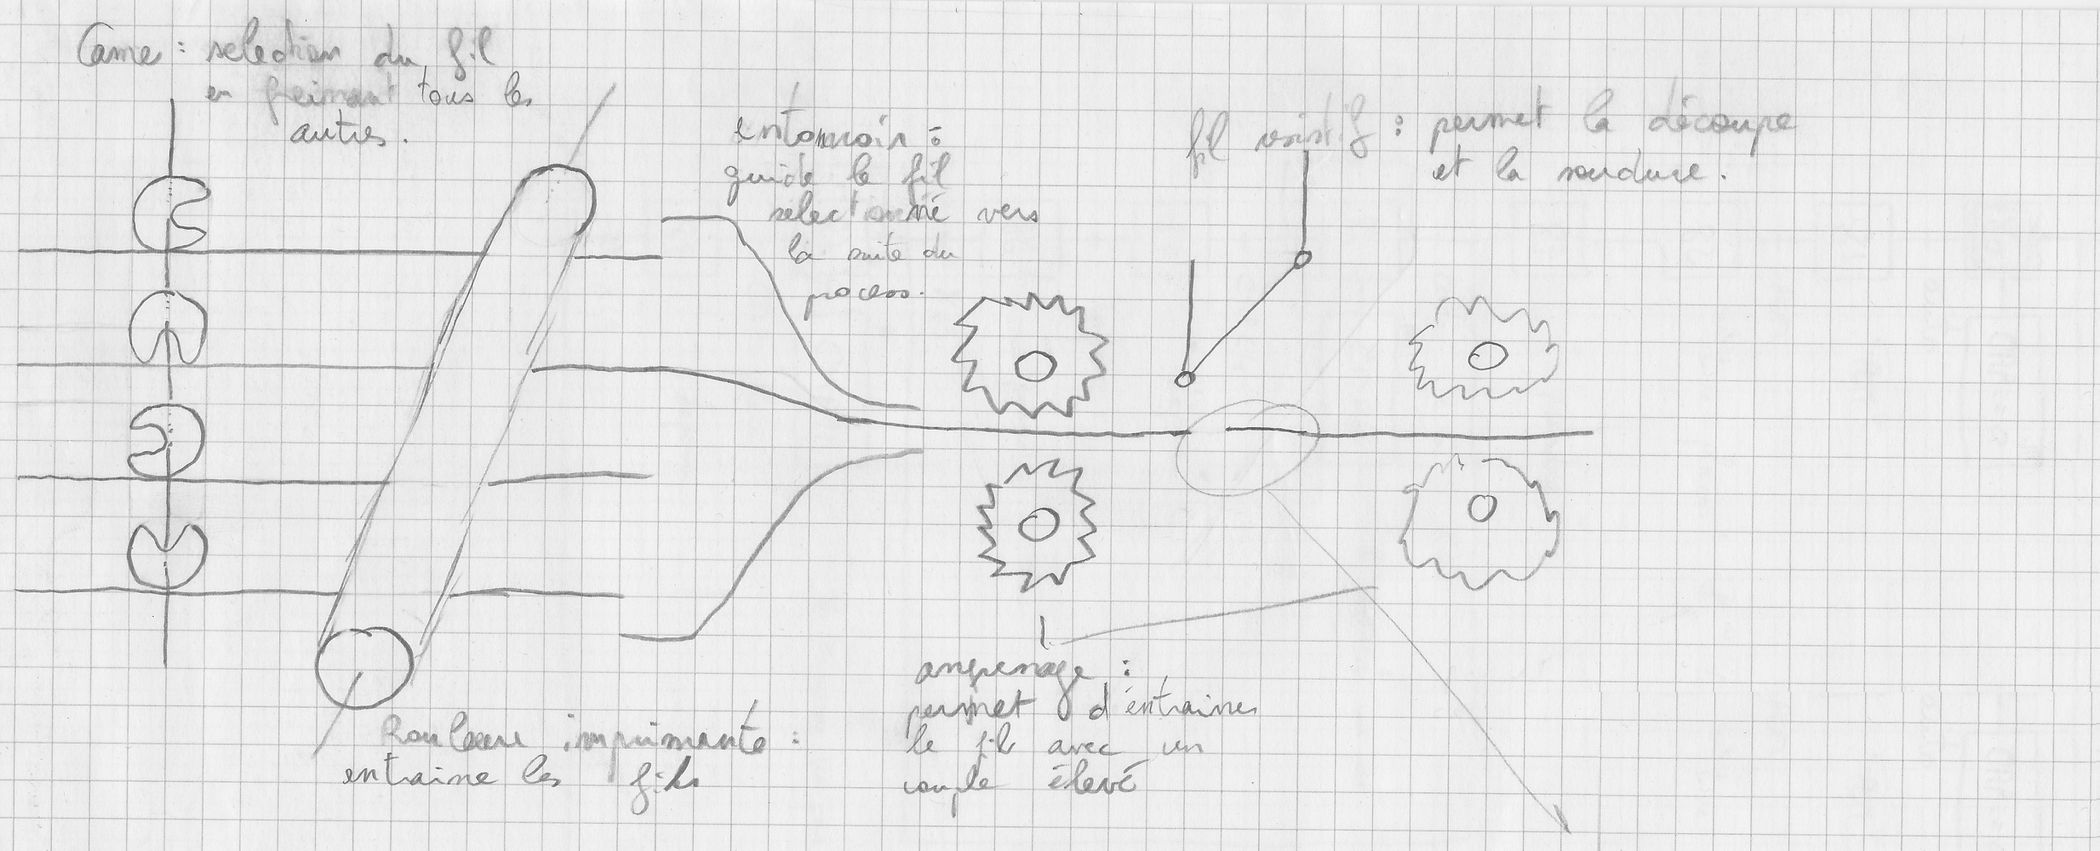 Came : selection du fil
en freinant tous les
autres.
entonnoir :
guide le fil
sélectionné vers
la suite du
process.
fil résistif : permet la découpe
et la soudure.
Rouleau imprimante :
entraine les fils
engrenage :
permet d'entrainer
le fil avec un
couple élevé